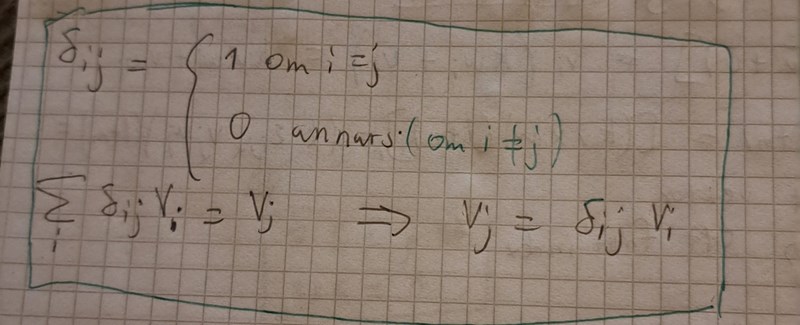 δij = { 1 om i = j
0 annars. (om i ≠ j)
∑i δij Vi = Vj ⇒ Vj = δij Vi